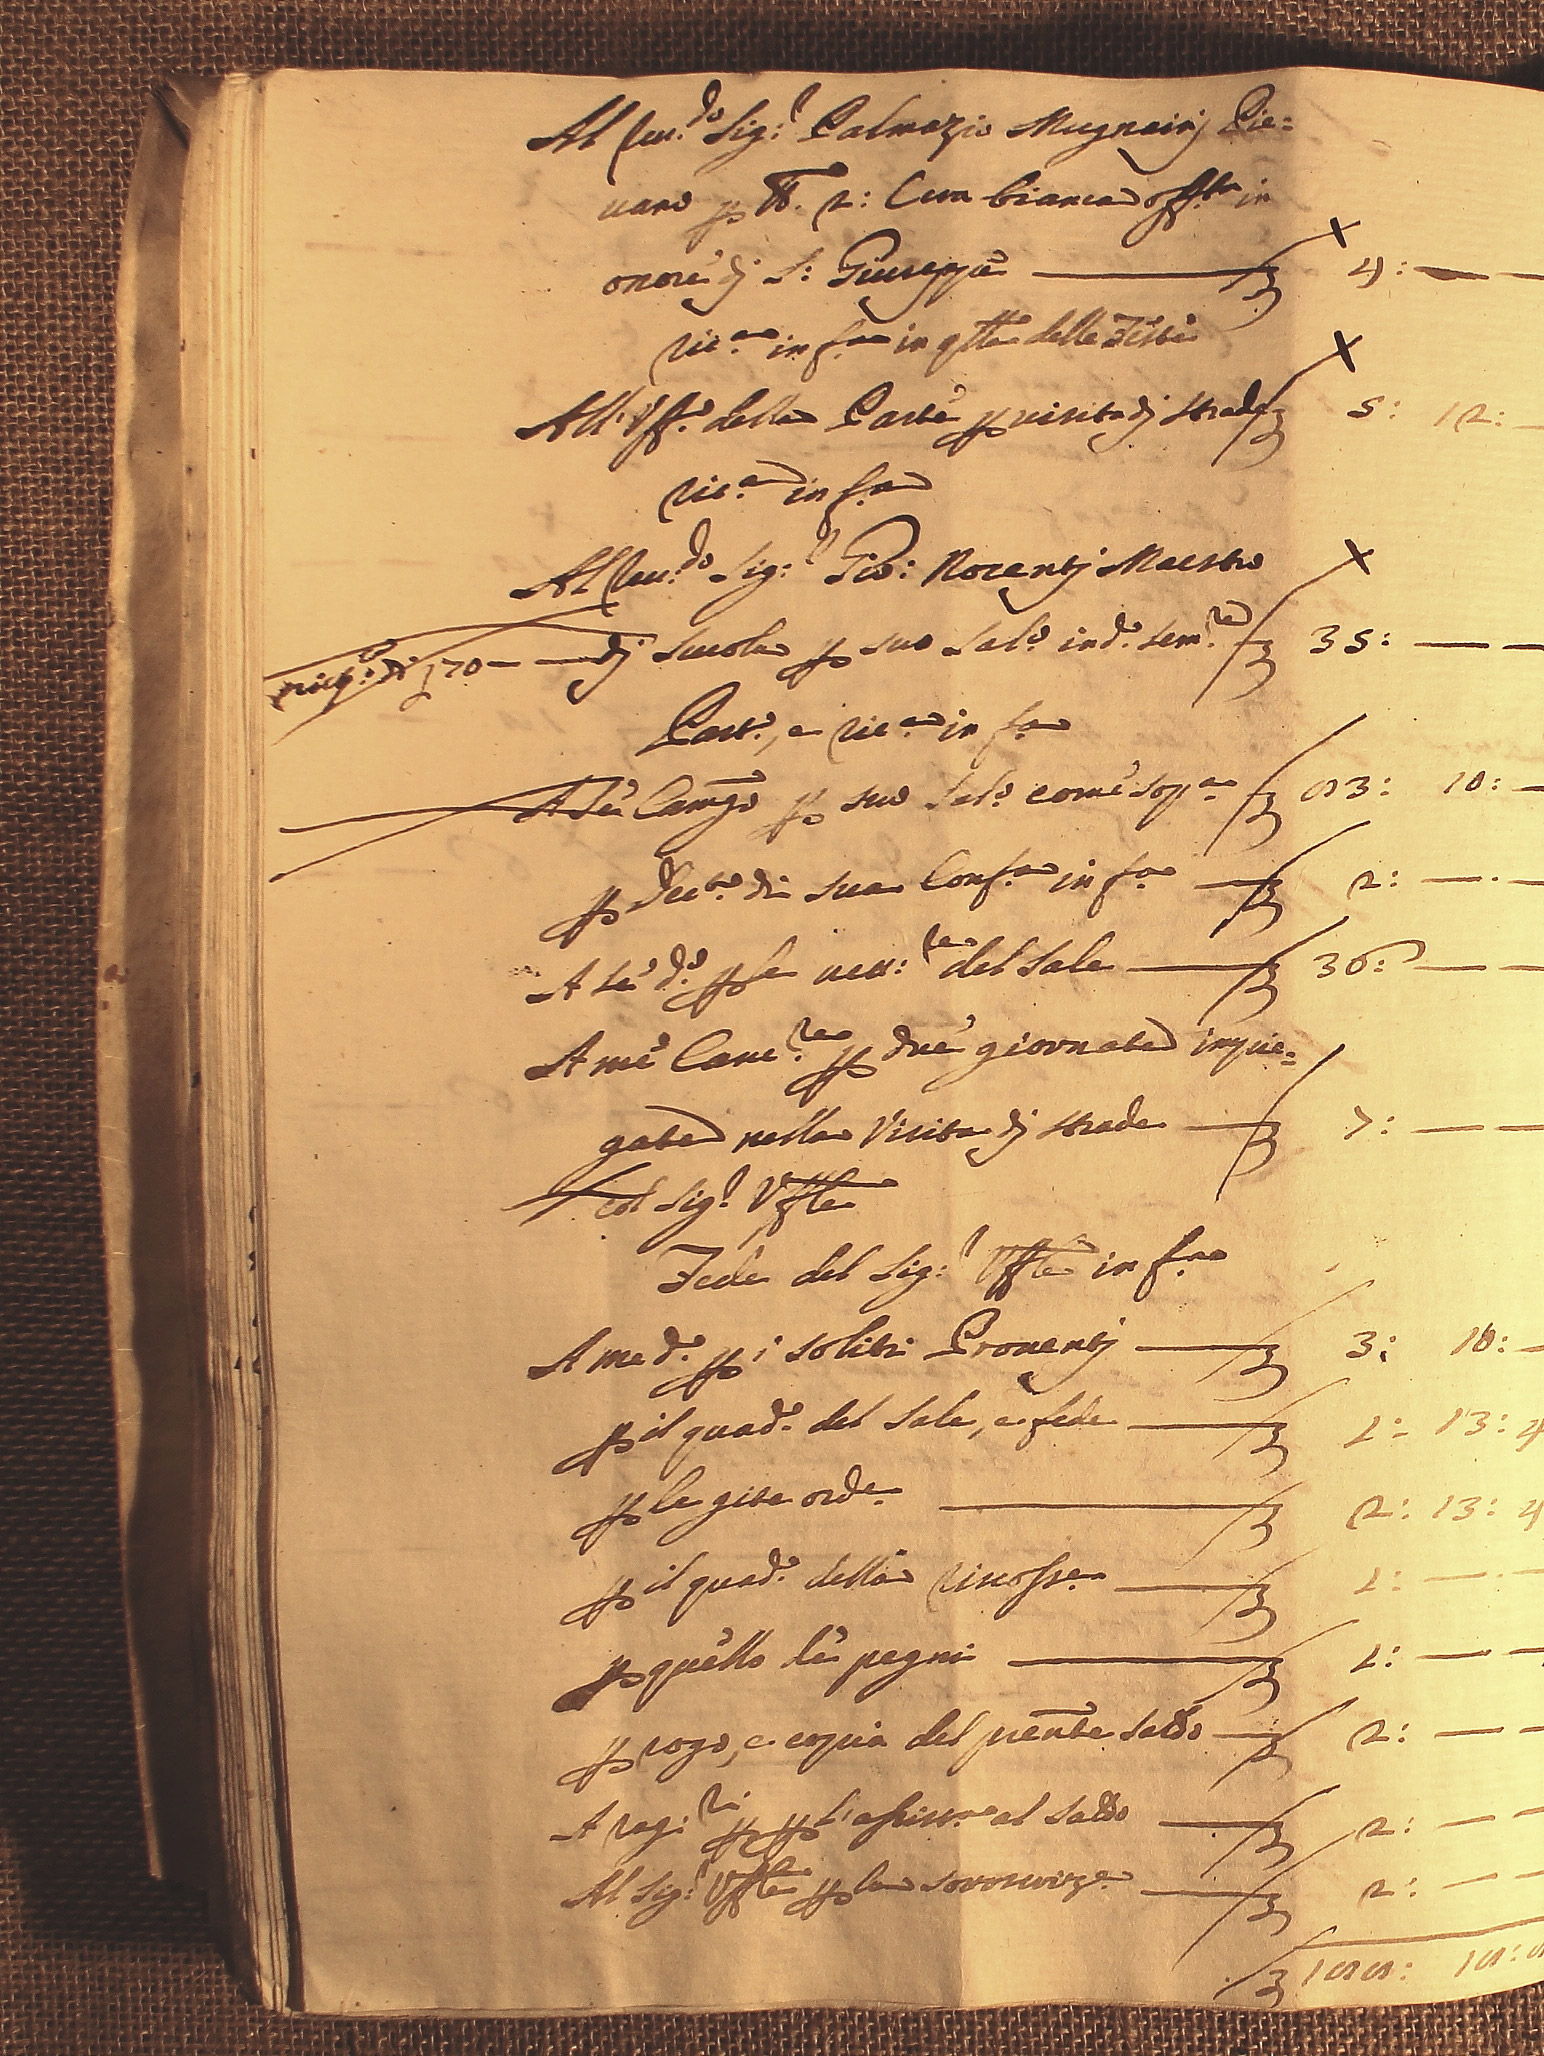 Al Reu.do Sig:r Palmazio Mugnainj Pie=
uano p lb. 2: Cera bianca offta in
onore dj S: Giuseppe 4: —
ric.a in f.a in qtta delle Feste
All' Uff.o della Parte p visita dj strade 5: 12: —
ric.a in f.a
Al Reu.do Sig:r Gio: Nocentj Maestro
dj scuola p suo Sal.o in d.o sem.re 35: —
Part.o, e ric.a in f.a
A Se Camgo p suo Sal.o come sop.a 93: 10: —
p Xcto di sua Conf.a in f.a 2: —
A Se d.o p le del Sale 36: —
A me Canc.re p due giornate impie=
gate nella Visita dj strade 7: —
col Sig.r Uffle
Fede del Sig:r Uffle in f.a
A me d.o p i soliti Proventj 3: 10: —
p il quad.o del Sale, e fede 1: 13: 4
p le gite orde 2: 13: 4
p il quad.o della riscossne 1: —
p quello de pegni 1: —
p rogo, e copia del prente saldo 2: —
A rag:ri p l'assist.a al saldo 2: —
Al Sig:r Uffle p la soroscrizne 2: —